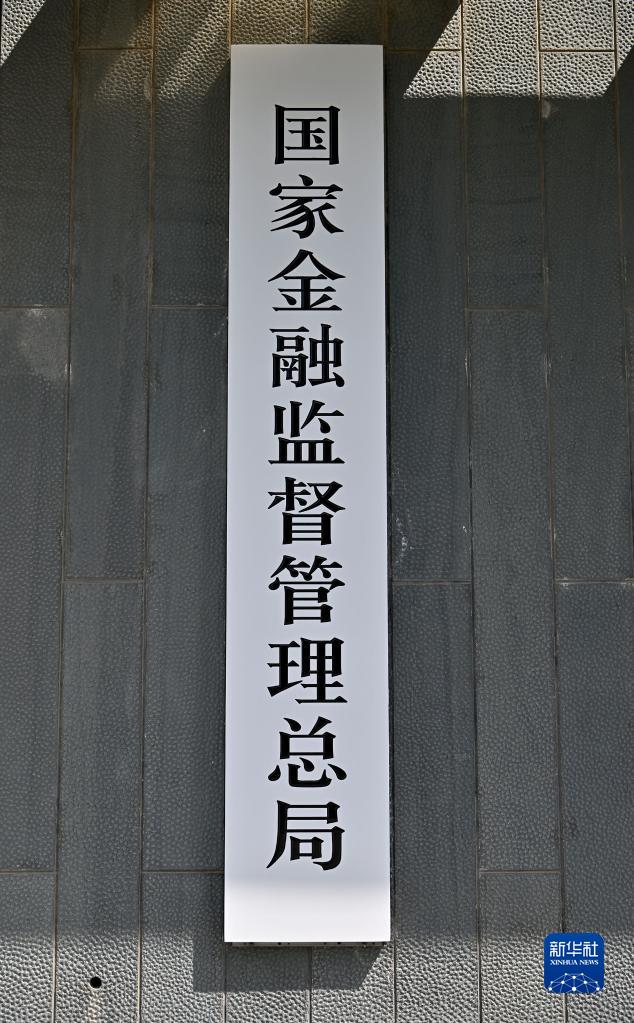 国家金融监督管理总局
新华社
XINHUA NEWS